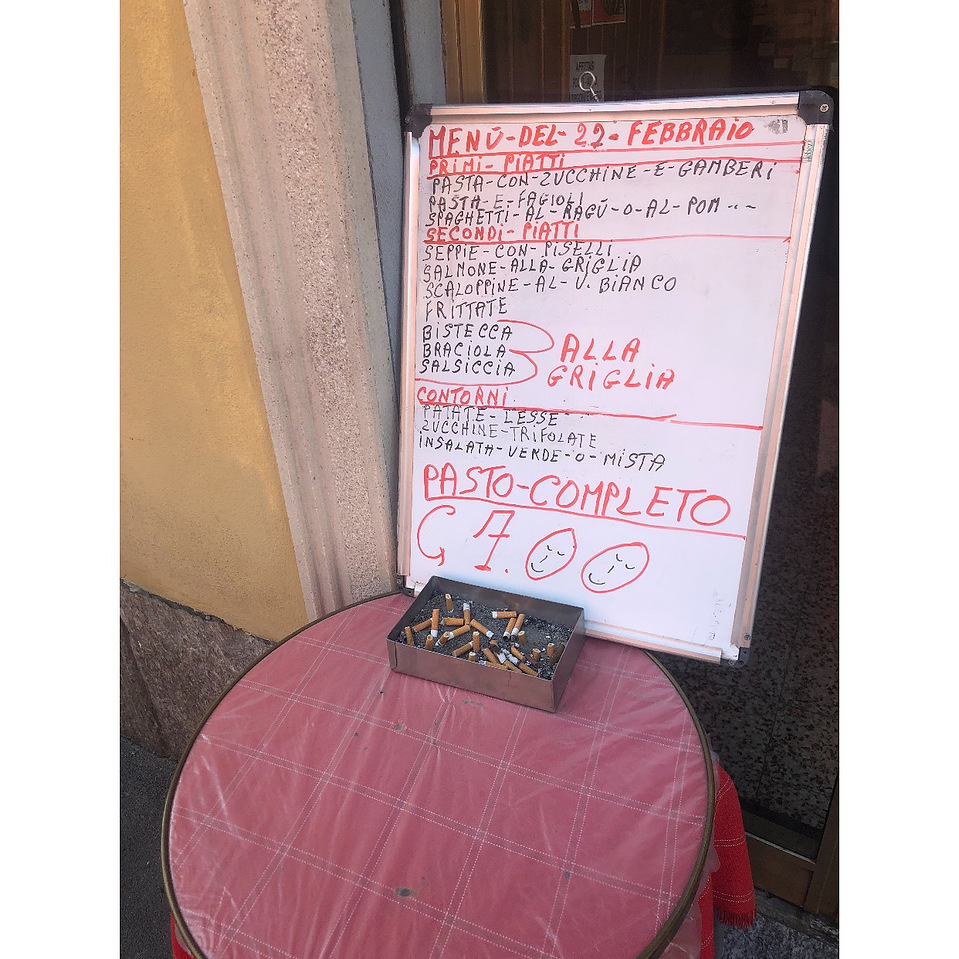 MENÚ-DEL-22-FEBBRAIO
PRIMI-PIATTI
PASTA-CON-ZUCCHINE-E-GAMBERI
PASTA-E-FAGIOLI
SPAGHETTI-AL-RAGÚ-O-AL-POM---
SECONDI-PIATTI
SEPPIE-CON-PISELLI
SALMONE-ALLA-GRIGLIA
SCALOPPINE-AL-V. BIANCO
FRITTATE
BISTECCA
BRACIOLA
SALSICCIA
ALLA
GRIGLIA
CONTORNI
PATATE-LESSE
ZUCCHINE-TRIFOLATE
INSALATA-VERDE-O-MISTA
PASTO-COMPLETO
7.00